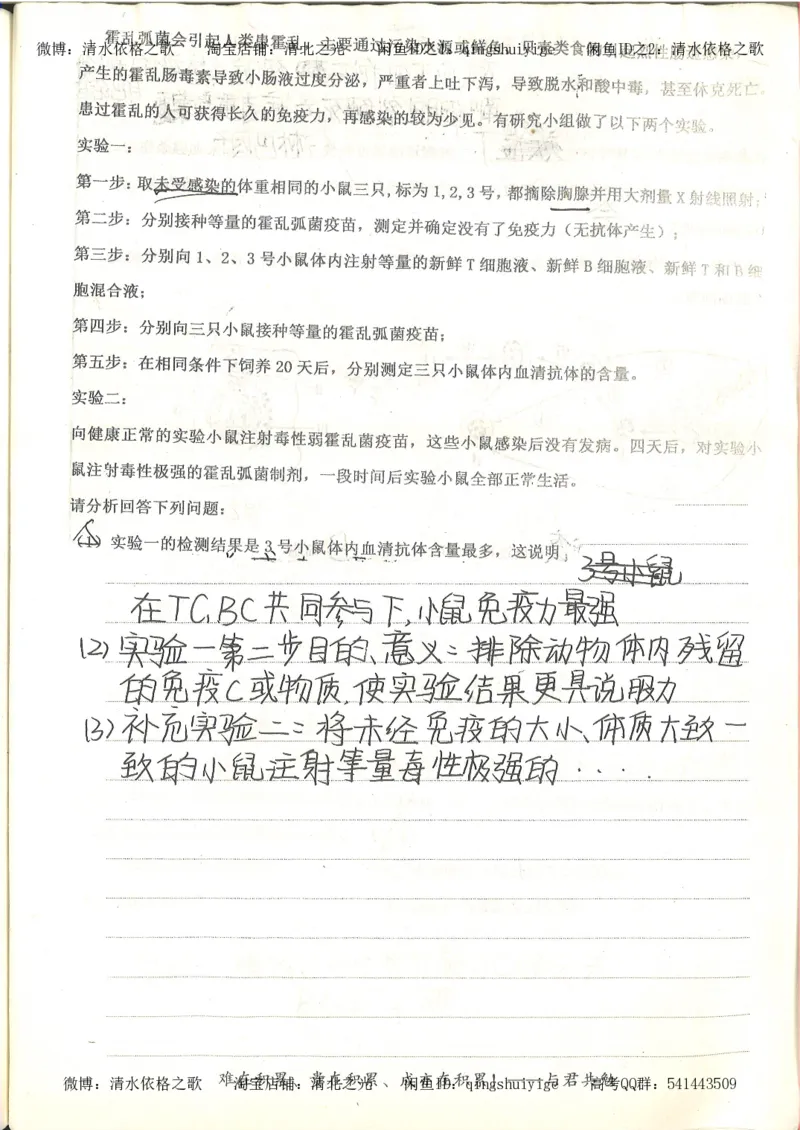 霍乱弧菌会引起人类患霍乱，主要通过污染水源或鲜鱼、贝壳类食物
微博：清水依格之歌 淘宝店铺：清北之光 闲鱼ID之1：qingshuiyige 闲鱼ID之2：清水依格之歌
产生的霍乱肠毒素导致小肠液过度分泌，严重者上吐下泻，导致脱水和酸中毒，甚至休克死亡。
患过霍乱的人可获得长久的免疫力，再感染的较为少见。有研究小组做了以下两个实验。
实验一：
第一步：取未受感染的体重相同的小鼠三只，标为1,2,3号，都摘除胸腺并用大剂量X射线照射；
第二步：分别接种等量的霍乱弧菌疫苗，测定并确定没有了免疫力（无抗体产生）；
第三步：分别向1、2、3号小鼠体内注射等量的新鲜T细胞液、新鲜B细胞液、新鲜T和B细
胞混合液；
第四步：分别向三只小鼠接种等量的霍乱弧菌疫苗；
第五步：在相同条件下饲养20天后，分别测定三只小鼠体内血清抗体的含量。
实验二：
向健康正常的实验小鼠注射毒性弱霍乱菌疫苗，这些小鼠感染后没有发病。四天后，对实验小
鼠注射毒性极强的霍乱弧菌制剂，一段时间后实验小鼠全部正常生活。
请分析回答下列问题：
(1) 实验一的检测结果是3号小鼠体内血清抗体含量最多，这说明，
3号小鼠
在TC,BC共同参与下,小鼠免疫力最强
(2) 实验一第二步目的、意义：排除动物体内残留
的免疫C或物质,使实验结果更具说服力
(3) 补充实验二：将未经免疫的大小、体质大致一
致的小鼠注射等量毒性极强的····
难在积累、常在积累、成亦在积累！——与君共勉
微博：清水依格之歌 淘宝店铺：清北之光 闲鱼ID：qingshuiyige 高考QQ群：541443509